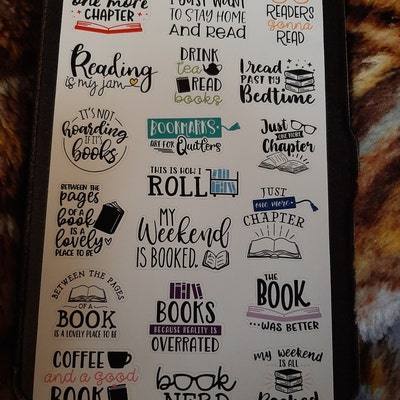 one more
CHAPTER
I Just Want
TO STAY HOME
And Read
READERS
gonna
READ
Reading
is my jam
DRINK
tea
READ
books
I read
PAST MY
Bedtime
IT'S NOT
hoarding
IF IT'S
books
BOOKMARKS
ARE FOR Quitters
Just
ONE MORE
Chapter
BETWEEN THE
pages
OF A
book
IS A
lovely
PLACE TO BE
THIS IS HOW I
ROLL
MY
Weekend
IS BOOKED.
JUST
one more
CHAPTER
BETWEEN THE PAGES
OF A
BOOK
IS A LOVELY PLACE TO BE
BOOKS
BECAUSE REALITY IS
OVERRATED
THE
BOOK
...WAS BETTER
COFFEE
and a good
BOOK
book
NERD
my weekend
IS ALL
Booked